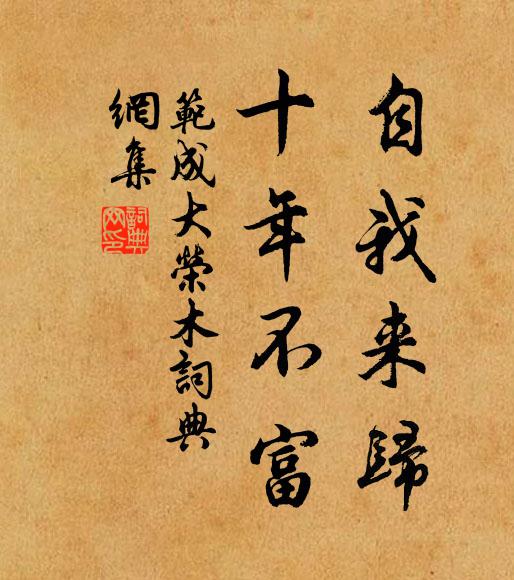 自我来歸
十年不富
範成大榮木詞典
網集
詞典
网印